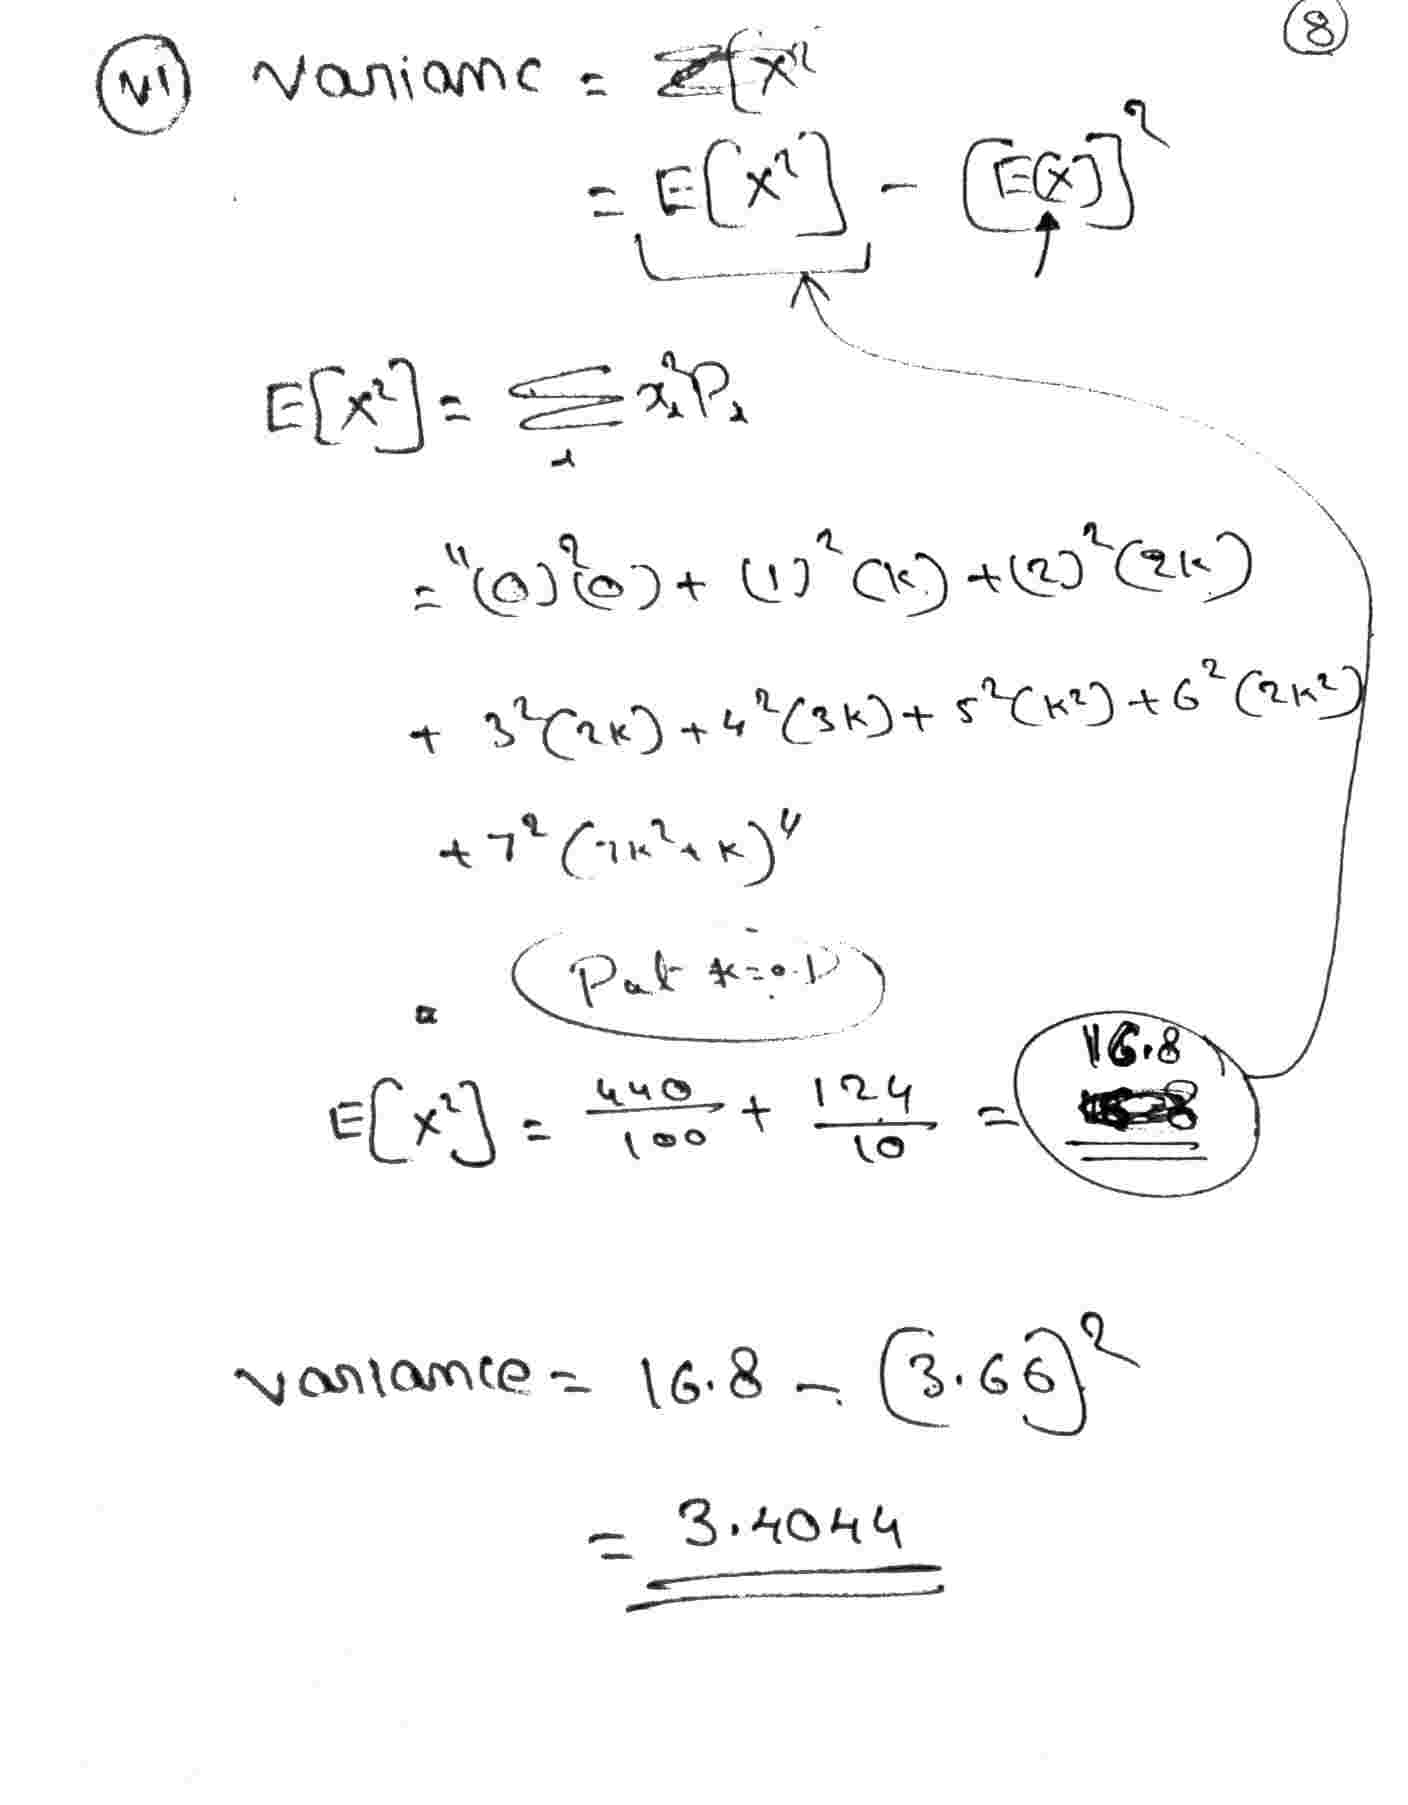 8
VI Varianc = Σ[X²
= E[X²] - [E(X)]²
E[X²] = Σ xᵢ²Pᵢ
i
= "(0)²(0) + (1)²(K) + (2)²(2K)
+ 3²(2K) + 4²(3K) + 5²(K²) + 6²(2K²)
+ 7²(7K²+K)"
Put K=0.1
16.8
E[X²] = 440/100 + 124/10 =
variance = 16.8 - (3.66)²
= 3.4044